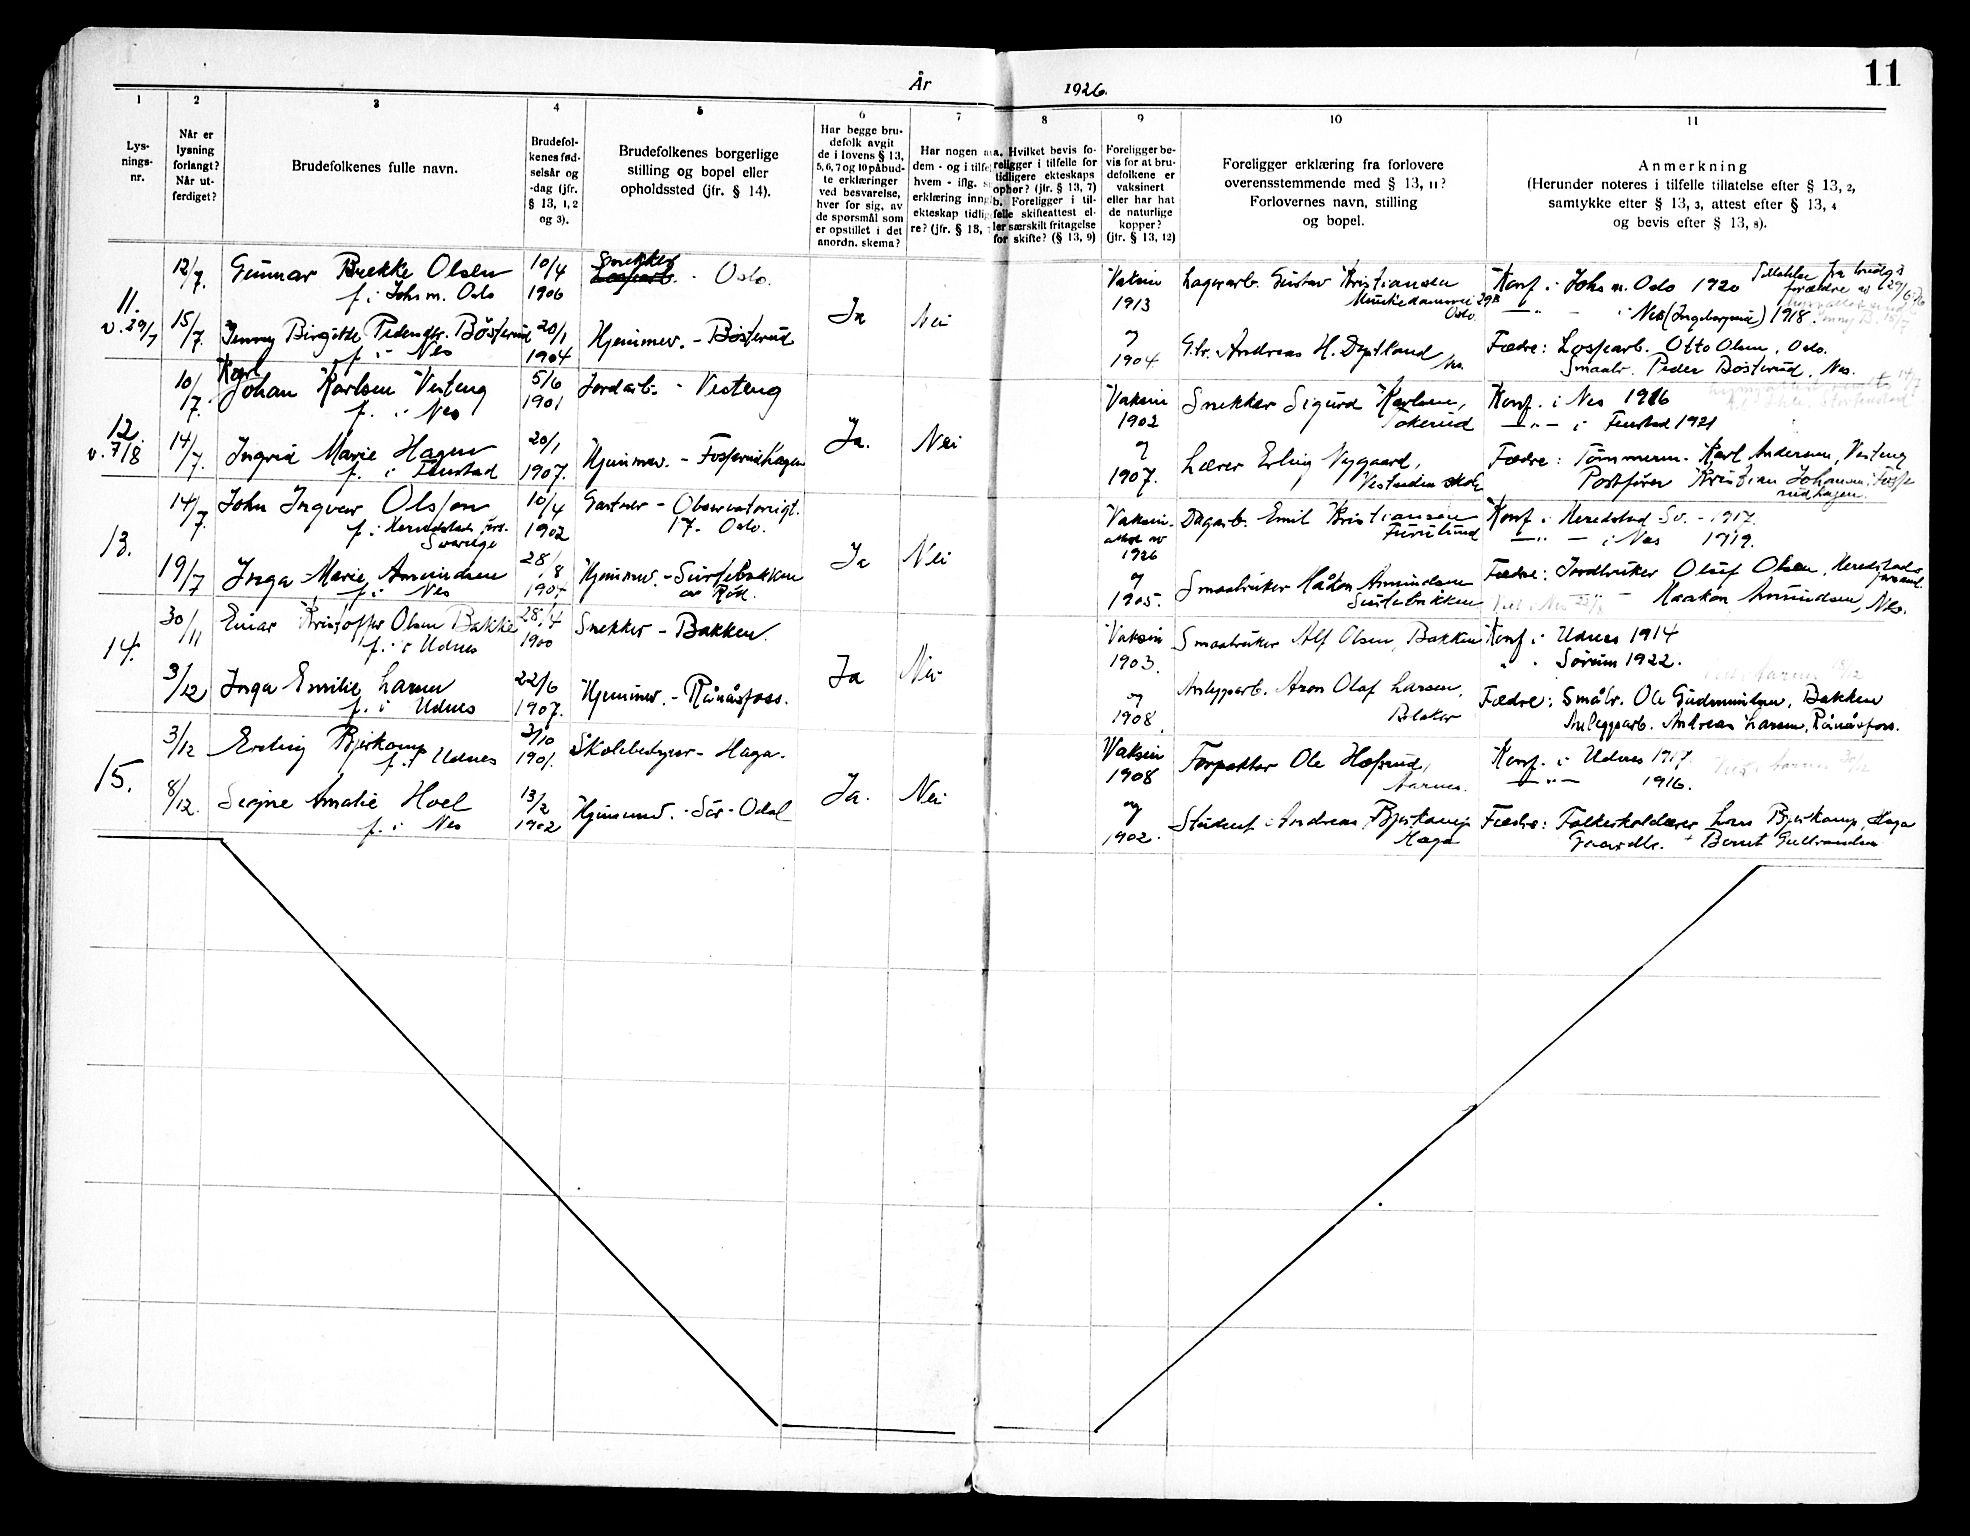 År 1926.
11
1
2
3
4
5
6
7
8
9
10
11
Lys-
nings-
nr.
Når er
lysning
forlangt?
Når ut-
ferdiget?
Brudefolkenes fulle navn.
Brudefol-
kenes fød-
selsår og
-dag (jfr.
§ 13, 1, 2
og 3).
Brudefolkenes borgerlige
stilling og bopel eller
opholdssted (jfr. § 14).
Har begge bru-
defolk avgit
de i lovens § 13,
5, 6, 7 og 10 påbud-
te erklæringer
ved besvarelse,
hver for sig, av
de spørsmål som
er opstillet i det
anordn. skema?
Har nogen a
dem - og i tilfe
hvem - iflg.
erklæring inng
ekteskap tidlig
re? (jfr. § 13,
a. Hvilket bevis fo-
religger i tilfelle for
tidligere ekteskaps
ophør? (jfr. § 13, 7)
b. Foreligger i til-
felle skifteattest el-
ler særskilt fritagelse
for skifte? (§ 13, 9)
Foreligger be-
vis for at bru-
defolkene er
vaksinert
eller har hat
de naturlige
kopper?
(jfr. § 13, 12)
Foreligger erklæring fra forlovere
overensstemmende med § 13, 11?
Forlovernes navn, stilling
og bopel.
Anmerkning
(Herunder noteres i tilfelle tillatelse efter § 13, 2,
samtykke efter § 13, 3, attest efter § 13, 4
og bevis efter § 13, 8).
11.
v. 29/7
12/7.
Gunnar Brekke Olsen
f. i Johs m. Oslo
10/4
1906
Snekker
- Oslo.
Ja
Nei
Vaksin
1913
Lagerarb. Gustav Kristiansen
Munkedammsvei 29B
Oslo.
Konf. i Johs m. Oslo 1920
15/7.
Jenny Birgitte Pedersdtr. Bösterud
f. i Nes
20/1
1904
Hjemmev. - Bösterud
og
1904
G.br. Andreas H. Dystland
Nes (Ingeborgrud) 1918.
Fædre: Losjearb. Otto Olsen, Oslo.
Smaabr. Peder Bösterud, Nes.
12
v. 7/8
10/7.
Karl
Johan Karlsen Vesteng
f. i Nes
5/6
1901
Jordarb. - Vesteng
Ja.
Nei
Vaksin
1902
Snekker Sigurd Karlsen,
Tokerud
Konf. i Nes 1916
14/7.
Ingrid Marie Hagen
f. i Fenstad
20/1
1907.
Hjemmev. - Fosserudhagen
og
1907.
Lærer Erling Nygaard,
Vestenden skole
—"— i Fenstad 1921
Fædre: Tömmerm. Karl Andersen, Vesteng
Postfører Kristian Johansen, Fosse
rudhagen.
13.
14/7.
John Ingvar Olsson
f. i Heredstads fors.
Sverige
10/4
1902
Gartner - Observatorigt.
17. Oslo.
Ja
Nei
Vaksin.
1926
Dagarb. Emil Kristiansen
Furulund
Konf. i Heredstad Sv. - 1917.
19/7
Inga Marie Amundsen
f. i Nes
28/8
1904
Hjemmev. - Surfebakken
og
1905.
Smaabruker Håkon Amundsen
—"— i Nes 1919.
Fædre: Jordbruker Olof Olsen, Heredstads
forsaml.
Haakon Amundsen, Nes.
14.
30/11
Einar Kristoffer Olsen Bakke
f. i Udnes
28/4
1900
Snekker - Bakken.
Ja
Nei
Vaksin
1903.
Smaabruker Alf Olsen, Bakken
Konf. i Udnes 1914
3/12
Inga Emilie Larsen
f. i Udnes
22/6
1907.
Hjemmev. - Rånåsfoss.
og
1908
Anleggsarb. Aron Olaf Larsen,
Blaker
" " Sørum 1922.
Fædre: Smålbr. Ole Gudmundsen, Bakken
Anleggsarb. Andreas Larsen, Rånåsfoss.
15.
3/12
Erling Bjerkamp
f. i Udnes
3/10
1901.
Skolebestyrer - Haga.
Ja.
Nei
Vaksin
1908
Forpakter Ole Hofsrud,
Aarnes.
Konf. i Udnes 1917.
8/12.
Signe Amalie Hoel
f. i Nes
13/2
1902
Hjemmev. - Sör-Odal
og
1902.
Student Andreas Bjerkamp
Haga
—"— 1916.
Fædre: Folkeskolelærer Lars Bjerkamp, Haga
Gaardbr. Bernt Gulbrandsen